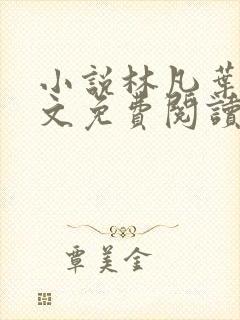 小說林凡葉
文免費閱讀
覃美金